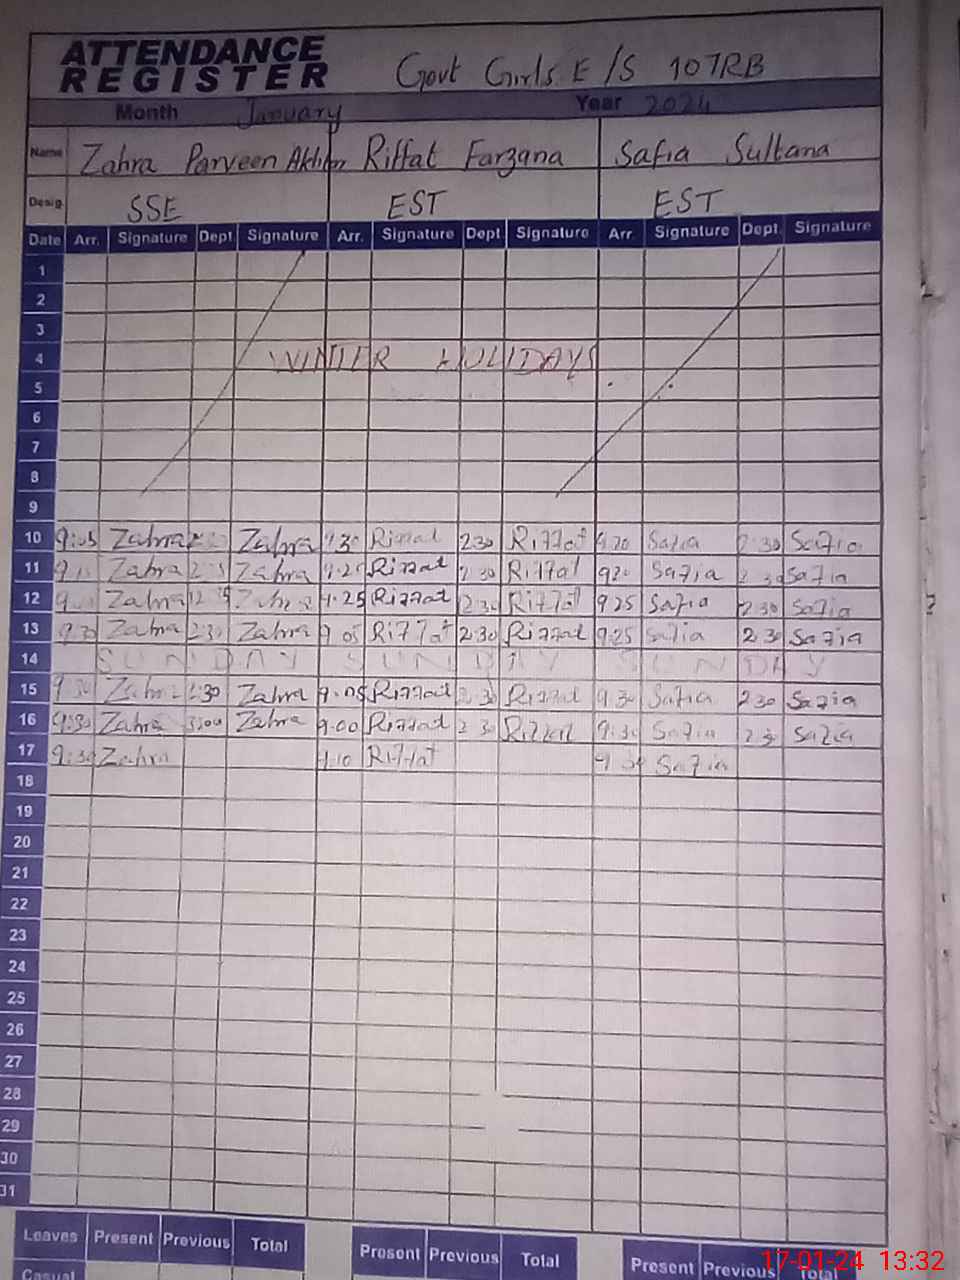 ATTENDANCE
REGISTER
Govt Girls E/S 107RB
Month January Year 2024
Name Zahra Parveen Akhter Riffat Farzana Safia Sultana
Desig. SSE EST EST
Date Arr. Signature Dept Signature Arr. Signature Dept Signature Arr. Signature Dept. Signature
1
2
3
4 WINTER HOLIDAYS
5
6
7
8
9
10 9:05 Zahra Zahra 9:30 Riffat 2:30 Riffat 9:20 Safia 2:30 Safia
11 Zahra Zahra 9:25 Riffat 2:30 Riffat 9:20 Safia 2:30 Safia
12 Zahra Zahra 9:25 Riffat 2:30 Riffat 9:25 Safia 2:30 Safia
13 9:30 Zahra 2:30 Zahra 9:05 Riffat 2:30 Riffat 9:25 Safia 2:30 Safia
14 SUNDAY SUNDAY SUNDAY
15 9:30 Zahra 2:30 Zahra 9:05 Riffat 2:30 Riffat 9:30 Safia 2:30 Safia
16 9:30 Zahra 3:00 Zahra 9:00 Riffat 2:30 Riffat 9:30 Safia 2:30 Safia
17 9:30 Zahra 9:10 Riffat 9:30 Safia
18
19
20
21
22
23
24
25
26
27
28
29
30
31
Leaves Present Previous Total Present Previous Total Present Previous Total
Casual
17-01-24 13:32